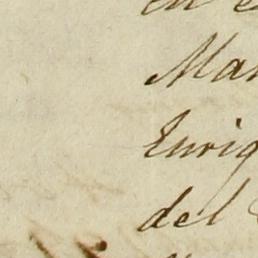 en e
Mar
Enriq
del